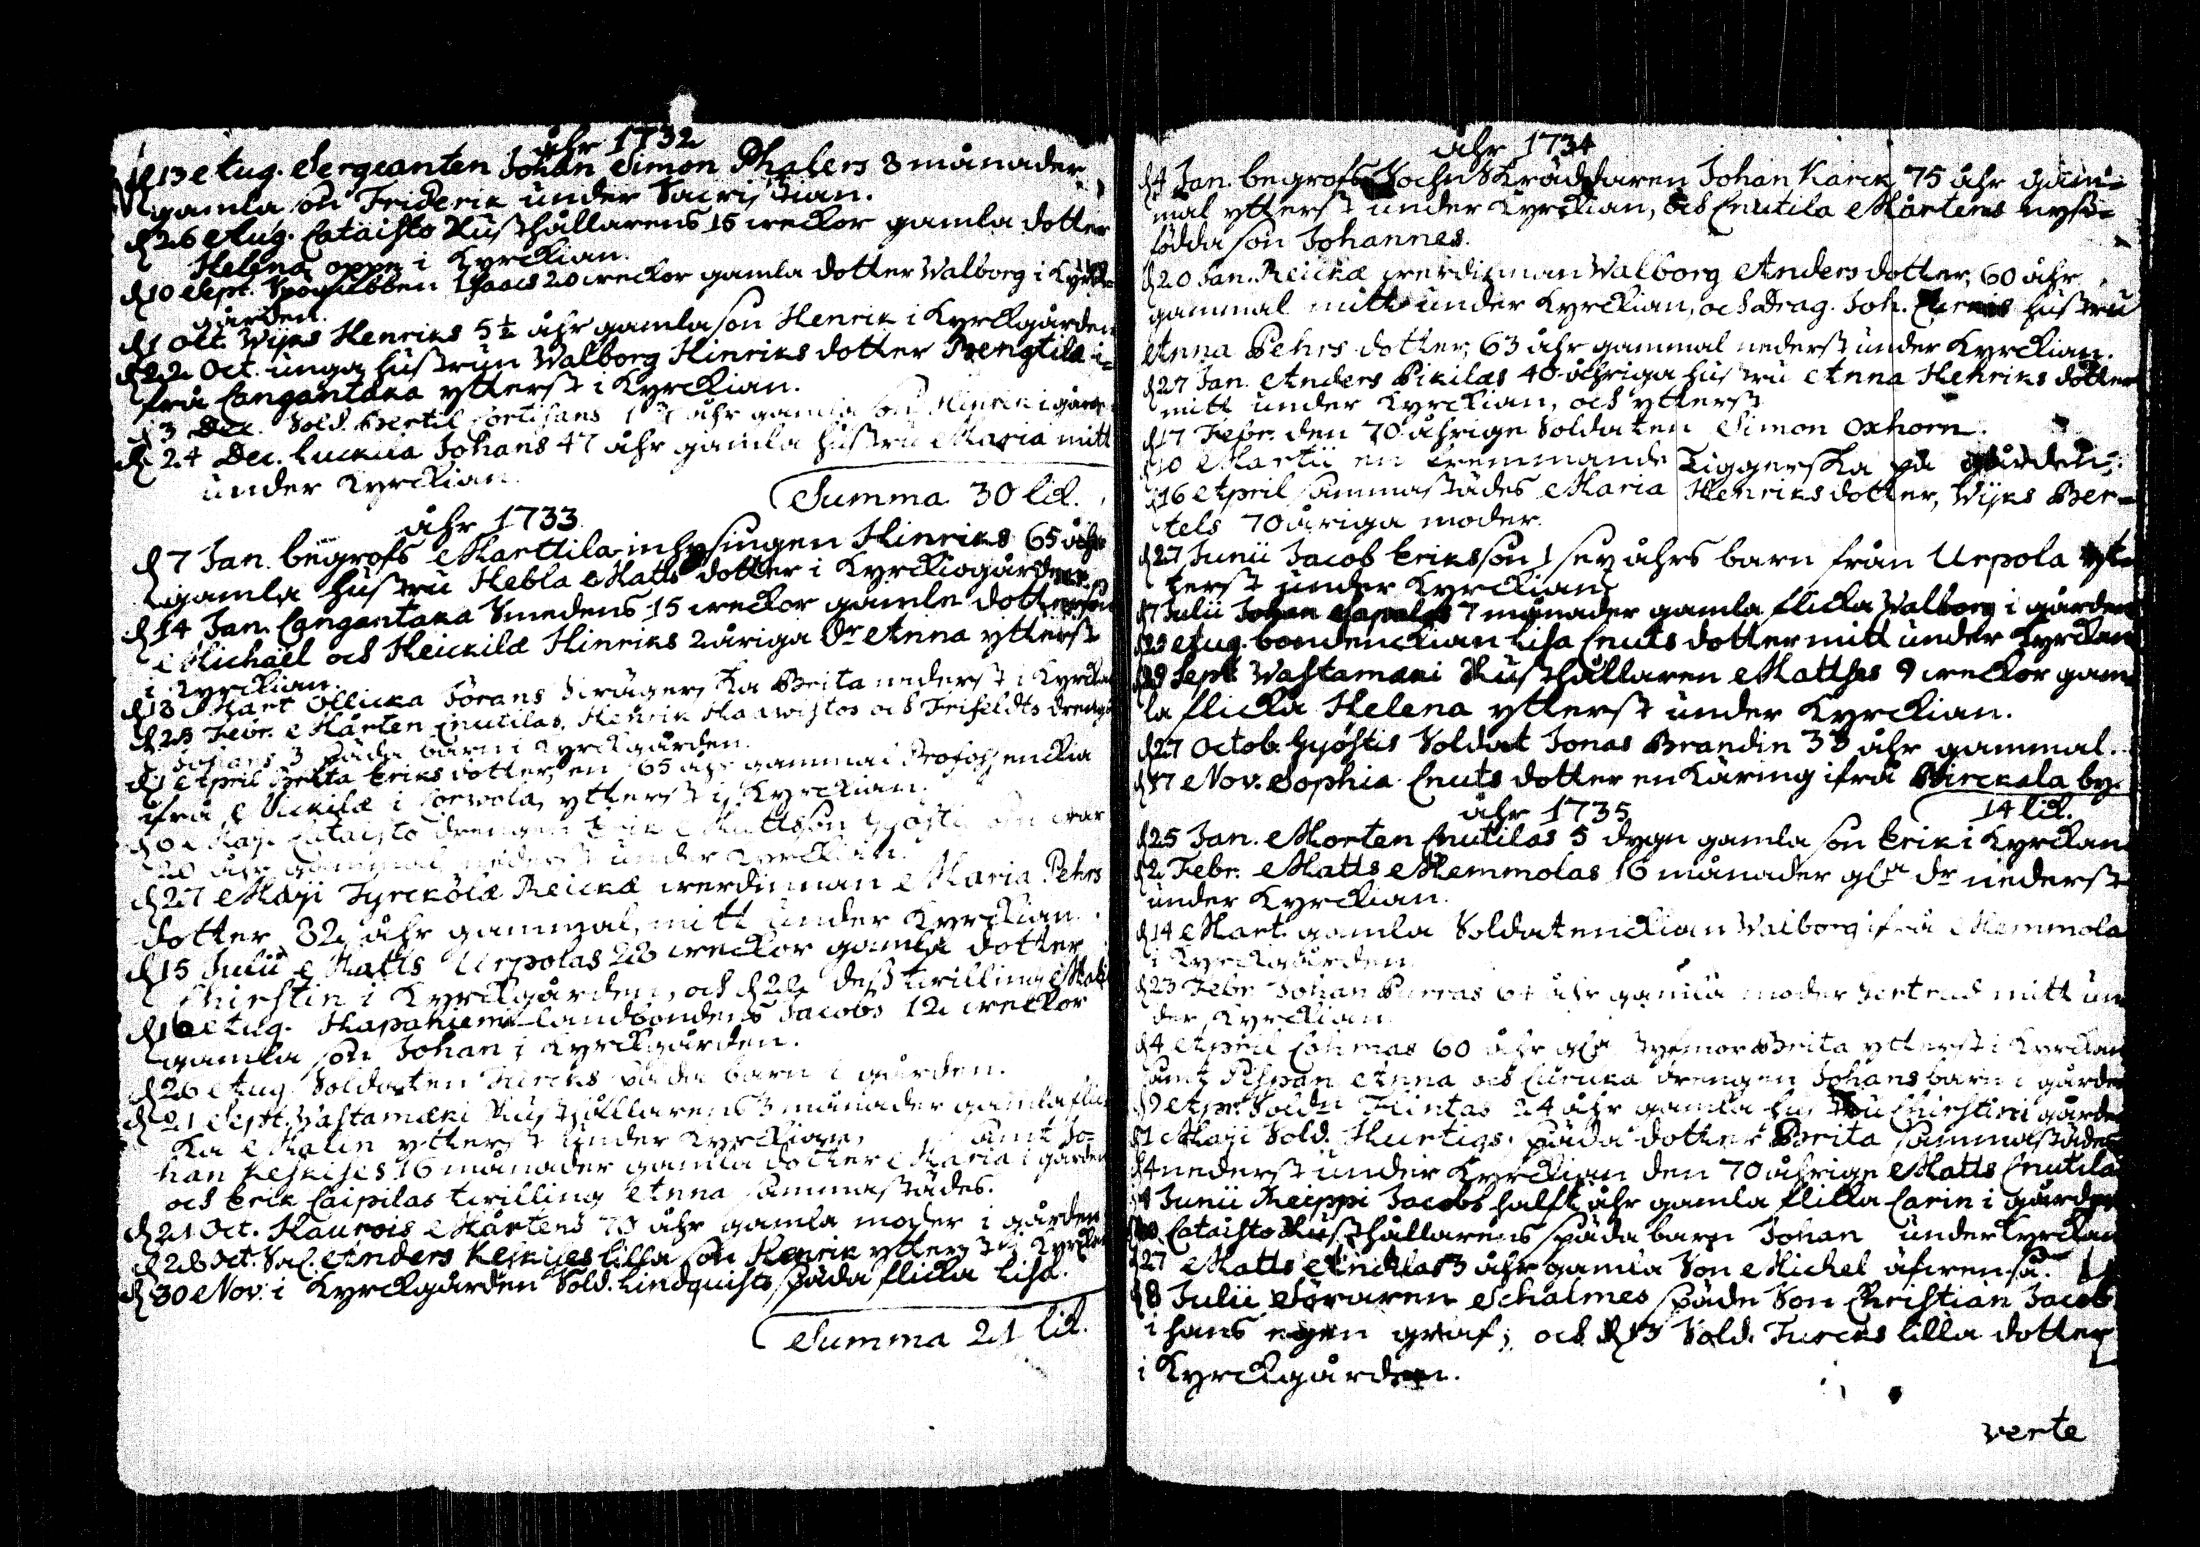 åhr 1732
d 13 Aug. Sergeanten Johan Simon Phalers 3 månader
gamla son Friderik under Sacristian.
d 26 Aug. Cataisto Rusthållarens 15 weckor gamla dotter
Helena oppe i Kyrckian.
d 10 Sept. Isaacs 20 weckor gamla dotter Walborg i Kyrck-
gården.
d 1 Oct. Wijks Henriks 5½ åhr gamla son Henrik i Kyrckgården
d 22 Oct. unga hustrun Walborg Hinriks dotter Bengtila i-
från Cangantaka ytterst i Kyrckian.
d 3 Dec. Sold. Bertil åhr gamla son Hinrik i gård.
d 24 Dec. Luckula Johans 47 åhr gamla hustru Maria mitt
under Kyrckian.
Summa 30 lik.
åhr 1733
d 7 Jan. begrofs Marttila inhysingen Hinriks 65 åhr
gamla hustru Hebla Matts dotter i Kyrckiogården
d 14 Jan. Cangantaka Smedens 15 weckor gamle dotterson
Michael och Heickilæ Hinriks 2 åriga Dr Anna ytterst
i Kyrckian.
d 18 Mart Ollicka Jörans Brita nederst i Kyrckian
d 25 Febr. Mårten Cnutilas, Henrik Haawistos och Frifeldts drengs
Johans 3 späda barn i Kyrckgården.
d 1 April Brita Eriks dotter, en 65 åhr gammal enckia
ifrå Mickilæ i Corwola, ytterst i Kyrckian.
d 6 Maji Cataisto drengen Erik Mattsson
20 åhr gammal nederst under Kyrckian.
d 27 Maji Tyrckölæ Reickæ werdinnan Maria Pehrs
dotter 32 åhr gammal, mitt under Kyrckian.
d 15 Julii Matts Urpolas 23 weckor gamla dotter
Chirstin i Kyrckgården, och d 22 dess twilling
d 16 Aug. Hapaniemi landbondens Jacobs 12 weckor
gamla son Johan i Kyrckgården.
d 26 Aug. Soldaten späda barn i gården.
d 21 Sept. Wastamäki Rusthållarens 3 månader gamla flic-
ka Malin ytterst under Kyrckian, samt Jo-
han Keskises 16 månader gamla dotter Maria i gården
och Erik Caipilas twilling Anna sammastädes.
d 21 Oct. Haurois Mårtens 70 åhr gamla moder i gården
d 28 Oct. Sal. Anders Keskises lilla son Henrik ytterst i Kyrckian
d 30 Nov. i Kyrckgården Sold. Lindquists späda flicka Lisa.
Summa 21 lik.
åhr 1734
d 4 Jan. begrofs Sochn Skräddaren Johan Karck 75 åhr gam-
mal ytterst under Kyrckian, och Cnutila Mårtens nyss-
födda son Johannes.
d 20 Jan. Reickæ werdinnan Walborg Anders dotter, 60 åhr
gammal mitt under Kyrckian, och Drag. Joh. hustru
Anna Pehrs dotter, 63 åhr gammal nederst under Kyrckian.
d 27 Jan. Anders Pikilas 40 åhriga hustru Anna Henriks dotter
mitt under Kyrckian, och ytterst
d 17 Febr. den 70 åhrige Soldaten Simon Oxhorn.
d 10 Martii en fremmande Tiggerska på gården.
d 16 April sammastädes Maria Henriks dotter, Wijks Ber-
tels 70 åriga moder.
d 27 Junii Jacob Eriksson, sex åhrs barn från Urpola yt-
terst under Kyrckian
d 7 Julii Johan 7 månader gamla flicka Walborg i gården
d 23 Aug. bondenckian Lisa Cnuts dotter mitt under Kyrckian
d 29 Sept. Wastamäki Rusthållaren Matthes 9 weckor gam-
la flicka Helena ytterst under Kyrckian.
d 27 Octob. Gyöstis Soldat Jonas Brandin 33 åhr gammal.
d 17 Nov. Sophia Cnuts dotter en Käring ifrå Birckala by.
14 lik.
åhr 1735
d 25 Jan. Morten Cnutilas 5 dygn gamla son Erik i Kyrckian
d 2 Febr. Matts Memmolas 16 månader gla dr nederst
under Kyrckian.
d 14 Mart. gamla Soldatenckian Walborg ifrå Memmola
i Kyrckgården.
d 23 Febr Johan Purras 64 åhr gamla moder Gertrud mitt un-
der Kyrckian.
d 4 April 60 åhr gla Brita ytterst i Kyrckian
samt Anna och drengen Johans barn i gården
d 9 Apr. Sold. Flintas 24 åhr gamla hustru Chirstin i gården
d 1 Maji Sold. Hurtigs späda dotter Brita sammastädes
d 4 nederst under Kyrckian den 70 åhrige Matts Cnutila
d 4 Junii Reippi Jacobs halft åhr gamla flicka Carin i gården
Cataisto Rusthållarens späda barn Johan under Kyrckian
d 27 Matts Anttilas 3 åhr gamla Son Michel äfwenså.
d 8 Julii Föraren Schalmes späde Son Christian Jacob
i hans egen graf; och d 13 Sold. Turcks lilla dotter
i Kyrckgården.
verte